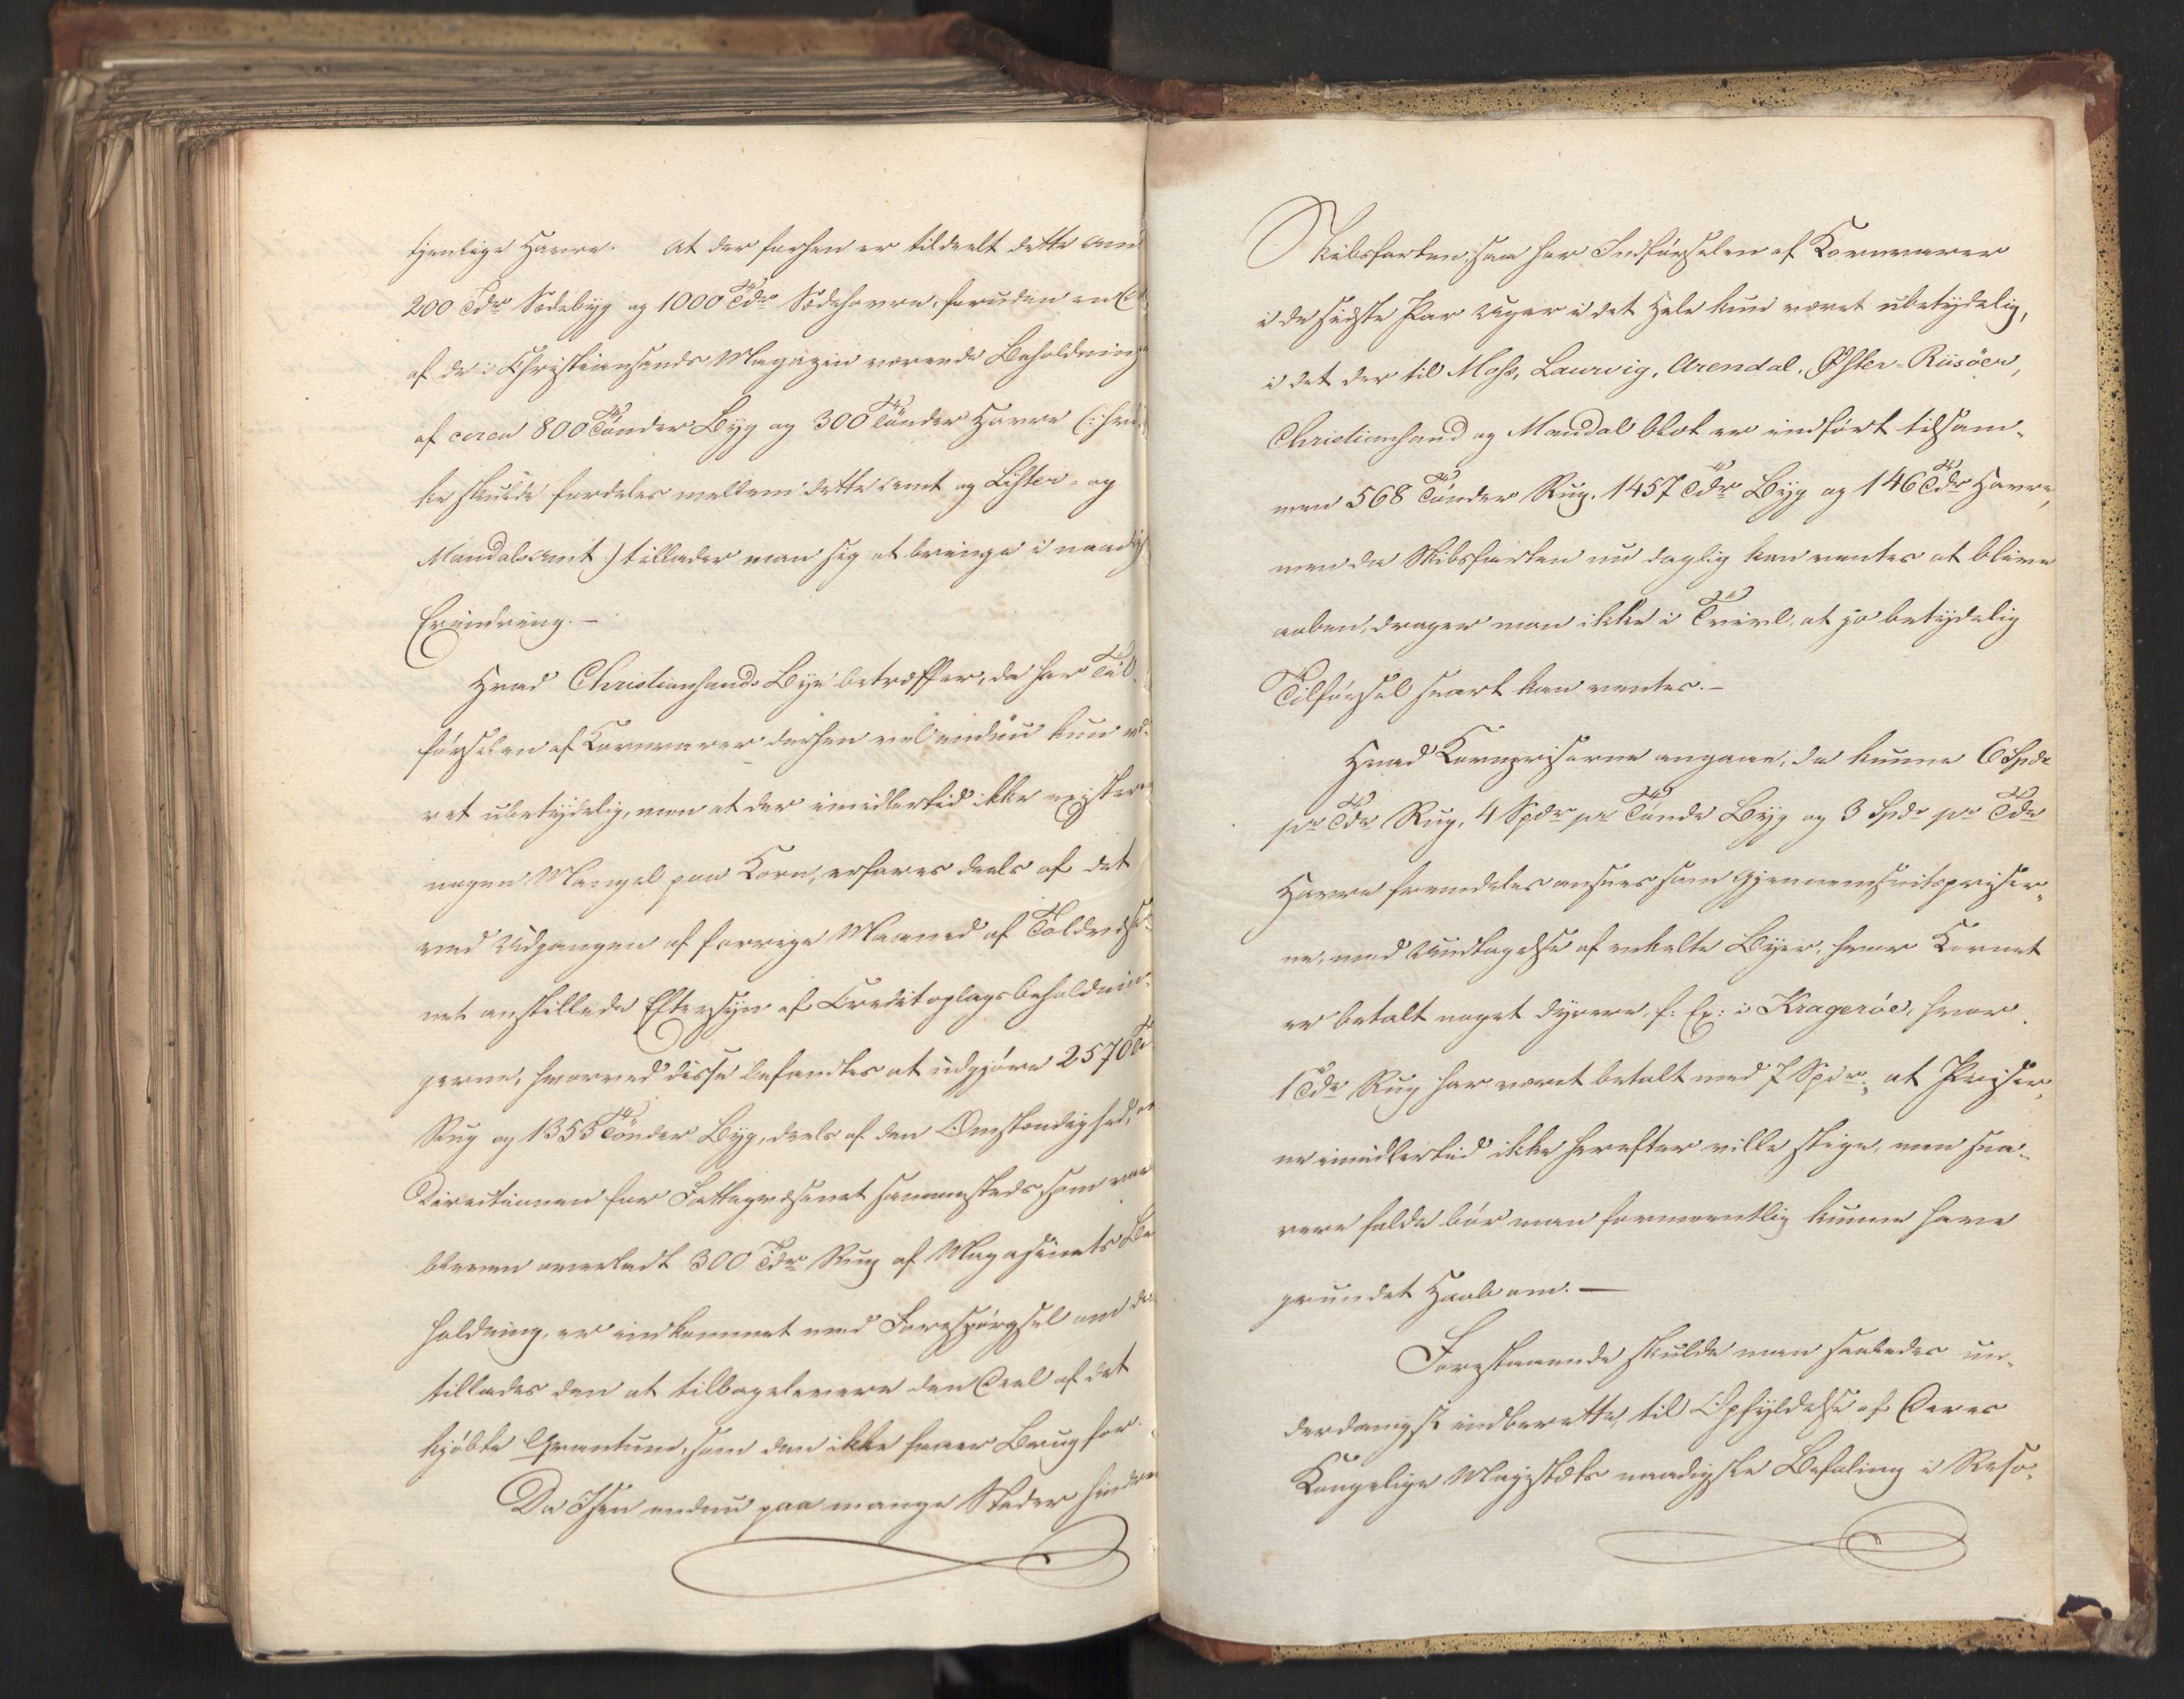 tjenlige Havre. At der forhen er tildeelt dette Amt
200 Tdr Sædebyg og 1000 Tdr Sædehavre, foruden en Deel
af de i Christiansands Magazin værende Beholdninger
af circa 800 Tønder Byg og 300 Tønder Havre (: hvil-
ke skulde fordeles mellem dette Amt og Lister- og
Mandals Amt :) tillader man sig at bringe i naadigst
Erindring. -
Hvad Christiansands Bye betræffer, da har Til-
førselen af Kornvarer derhen vel endnu kun væ-
ret ubetydelig, men at der imidlertid ikke existerer
nogen Mangel paa Korn, erfares deels af det
ved Udgangen af forrige Maaned af Toldvæse-
net anstillede Eftersyn af Creditoplagsbeholdnin-
gerne, hvorved disse befandtes at udgjøre 2570 Tdr
Rug og 1355 Tønder Byg, deels af den Omstændighed, at
Directionen for Fattigvæsenet sammesteds, som var
bleven overladt 300 Tdr Rug af Magasinets Be-
holdning, er indkommet med Forespørgsel om det
tillades den at tilbagelevere den Deel af det
kjøbte Qvantum, som den ikke haver Brug for.
Da Isen endnu paa mange Steder hindrer
Skibsfarten, saa har Indførselen af Kornvarer
i de sidste Par Uger i det Hele kun været ubetydelig,
i det der til Moss, Laurvig, Arendal, Øster-Riisöer,
Christiansand og Mandal blot er indført tilsam-
men 568 Tønder Rug, 1457 Tdr Byg og 146 Tdr Havre,
men da Skibsfarten nu daglig kan ventes at blive
aaben, drager man ikke i Tvivl, at jo betydelig
Tilførsel snart kan ventes. -
Hvad Kornpriserne angaae, da kunne 6 Spdr
pr Tdr Rug, 4 Spdr pr Tønde Byg og 3 Spdr pr Tdr
Havre fremdeles ansees som Gjennemsnitspriser-
ne, med Undtagelse af enkelte Byer, hvor Kornet
er betalt noget dyrere, f: Ex: i Kragerøe, hvor
1 Tdr Rug har været betalt med 7 Spdr; at Priser-
ne imidlertid ikke herefter ville stige, men sna-
rere falde bør man formeentlig kunne have
grundet Haab om. -
Forestaaende skulde man saaledes un-
derdanigst indberette, til Opfyldelse af Deres
Kongelige Majestæts naadigste Befaling i Reso-